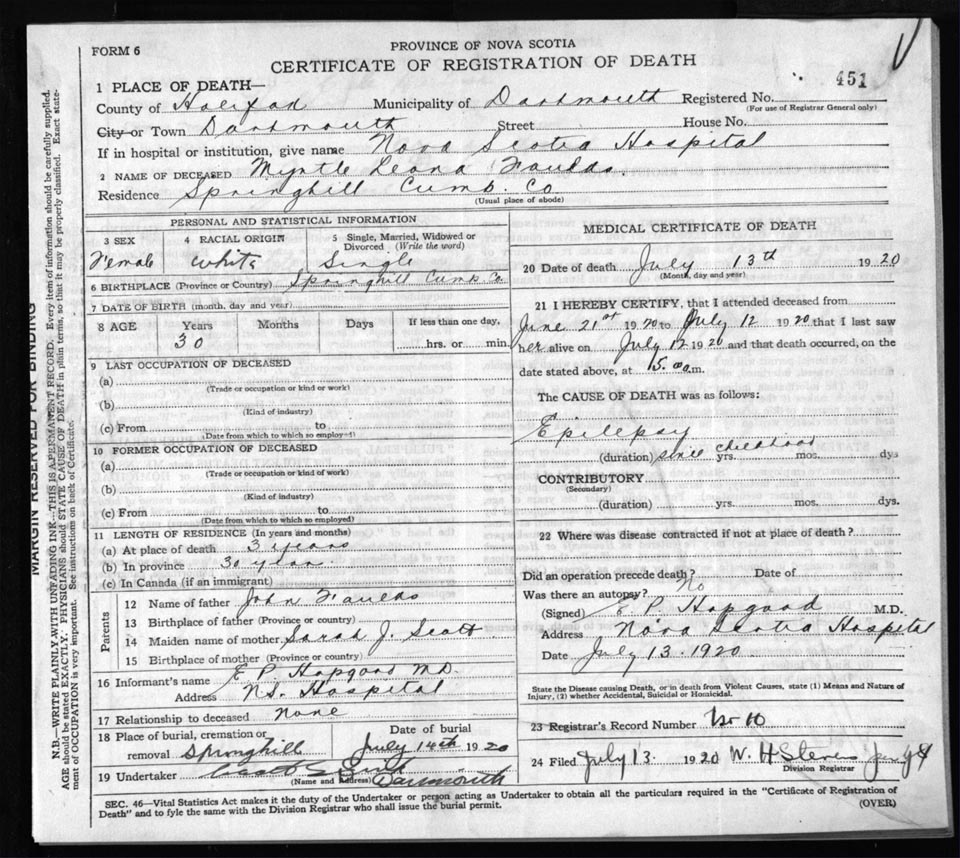 FORM 6
PROVINCE OF NOVA SCOTIA
CERTIFICATE OF REGISTRATION OF DEATH
451
1 PLACE OF DEATH—
County of Halifax Municipality of Dartmouth Registered No.
(For use of Registrar General only)
City or Town Dartmouth Street House No.
If in hospital or institution, give name Nova Scotia Hospital
2 NAME OF DECEASED Myrtle Leona Faulds.
Residence Springhill Cumb. Co
(Usual place of abode)
PERSONAL AND STATISTICAL INFORMATION
3 SEX 4 RACIAL ORIGIN 5 Single, Married, Widowed or Divorced (Write the word)
Female White Single
6 BIRTHPLACE (Province or Country) Springhill Cumb. Co
7 DATE OF BIRTH (month, day and year)
8 AGE Years Months Days If less than one day,
30 hrs. or min.
9 LAST OCCUPATION OF DECEASED
(a)
(Trade or occupation or kind or work)
(b)
(Kind of industry)
(c) From to
(Date from which to which so employed)
10 FORMER OCCUPATION OF DECEASED
(a)
(Trade or occupation or kind of work)
(b)
(Kind of industry)
(c) From to
(Date from which to which so employed)
11 LENGTH OF RESIDENCE (In years and months)
(a) At place of death 3 years
(b) In province 30 years
(c) In Canada (if an immigrant)
Parents
12 Name of father John Faulds
13 Birthplace of father (Province or country)
14 Maiden name of mother Sarah J. Scott
15 Birthplace of mother (Province or country)
16 Informant's name E P Hopgood M.D.
Address N.S. Hospital
17 Relationship to deceased none
18 Place of burial, cremation or Date of burial
removal Springhill July 14th 1920
19 Undertaker
(Name and Address) Dartmouth
MEDICAL CERTIFICATE OF DEATH
20 Date of death July 13th 1920
(Month, day and year)
21 I HEREBY CERTIFY, that I attended deceased from
June 21st 1920 to July 12 1920 that I last saw
her alive on July 12 1920 and that death occurred, on the
date stated above, at m.
The CAUSE OF DEATH was as follows:
Epilepsy
(duration) since childhood yrs. mos. dys
CONTRIBUTORY
(Secondary)
(duration) yrs. mos. dys.
22 Where was disease contracted if not at place of death?
Did an operation precede death? No Date of
Was there an autopsy?
(Signed) E. P. Hopgood M.D.
Address Nova Scotia Hospital
Date July 13. 1920
State the Disease causing Death, or in death from Violent Causes, state (1) Means and Nature of
Injury, (2) whether Accidental, Suicidal or Homicidal.
23 Registrar's Record Number
24 Filed July 13 1920 W. H.
Division Registrar
SEC. 46—Vital Statistics Act makes it the duty of the Undertaker or person acting as Undertaker to obtain all the particulars required in the "Certificate of Registration of
Death" and to fyle the same with the Division Registrar who shall issue the burial permit.
(OVER)
MARGIN RESERVED FOR BINDING
N.B.—WRITE PLAINLY, WITH UNFADING INK—THIS IS A PERMANENT RECORD. Every item of information should be carefully supplied.
AGE should be stated EXACTLY. PHYSICIANS should STATE CAUSE OF DEATH in plain terms, so that it may be properly classified. Exact state-
ment of OCCUPATION is very important. See instructions on back of Certificate.